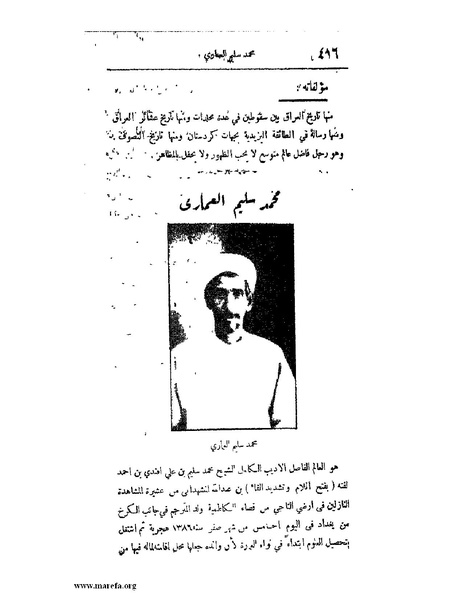 ٤٩٦
محمد سليم العماري
مؤلفاته :
منها تاريخ العراق بين سقوطين في عدة مجلدات ومنها تاريخ عشائر العراق
ومنها رسالة في الطائفة اليزيدية بجهات كردستان ومنها تاريخ التصوف
وهو رجل فاضل عالم متوسع لا يحب الظهور ولا يحفل بالمظاهر
محمد سليم العمارى
محمد سليم العماري
هو العالم الفاضل الاديب الكامل الشيخ محمد سليم بن علي افندي بن احمد
لفته ( بفتح اللام وتشديد الفاء ) بن عبدالله المشهداني من عشيرة المشاهدة
النازلين في ارضي التاجي من قضاء الكاظمية ولد المترجم في جانب الكرخ
من بغداد في اليوم الخامس من شهر صفر سنة ١٣٨٦ هجرية ثم اشتغل
بتحصيل العلوم ابتداء في لواء البصرة لأن والده جعلها محل اقامته لما له فيها من
www.marefa.org